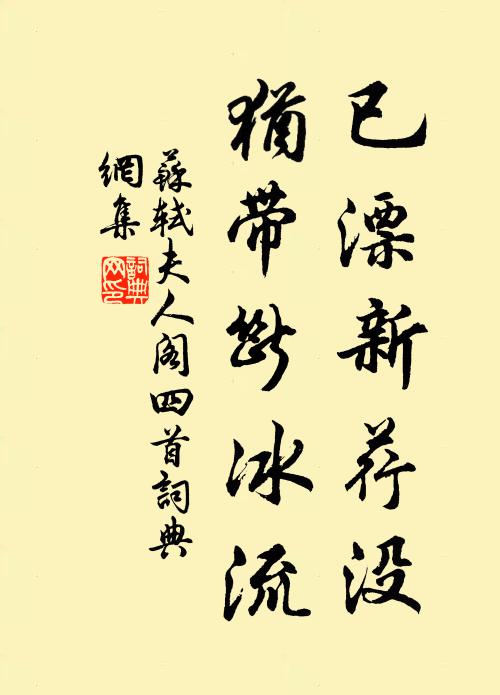 已漂新荇没
猶帶斷冰流
蘇軾夫人阁四首詞典
網集
詞典
网印